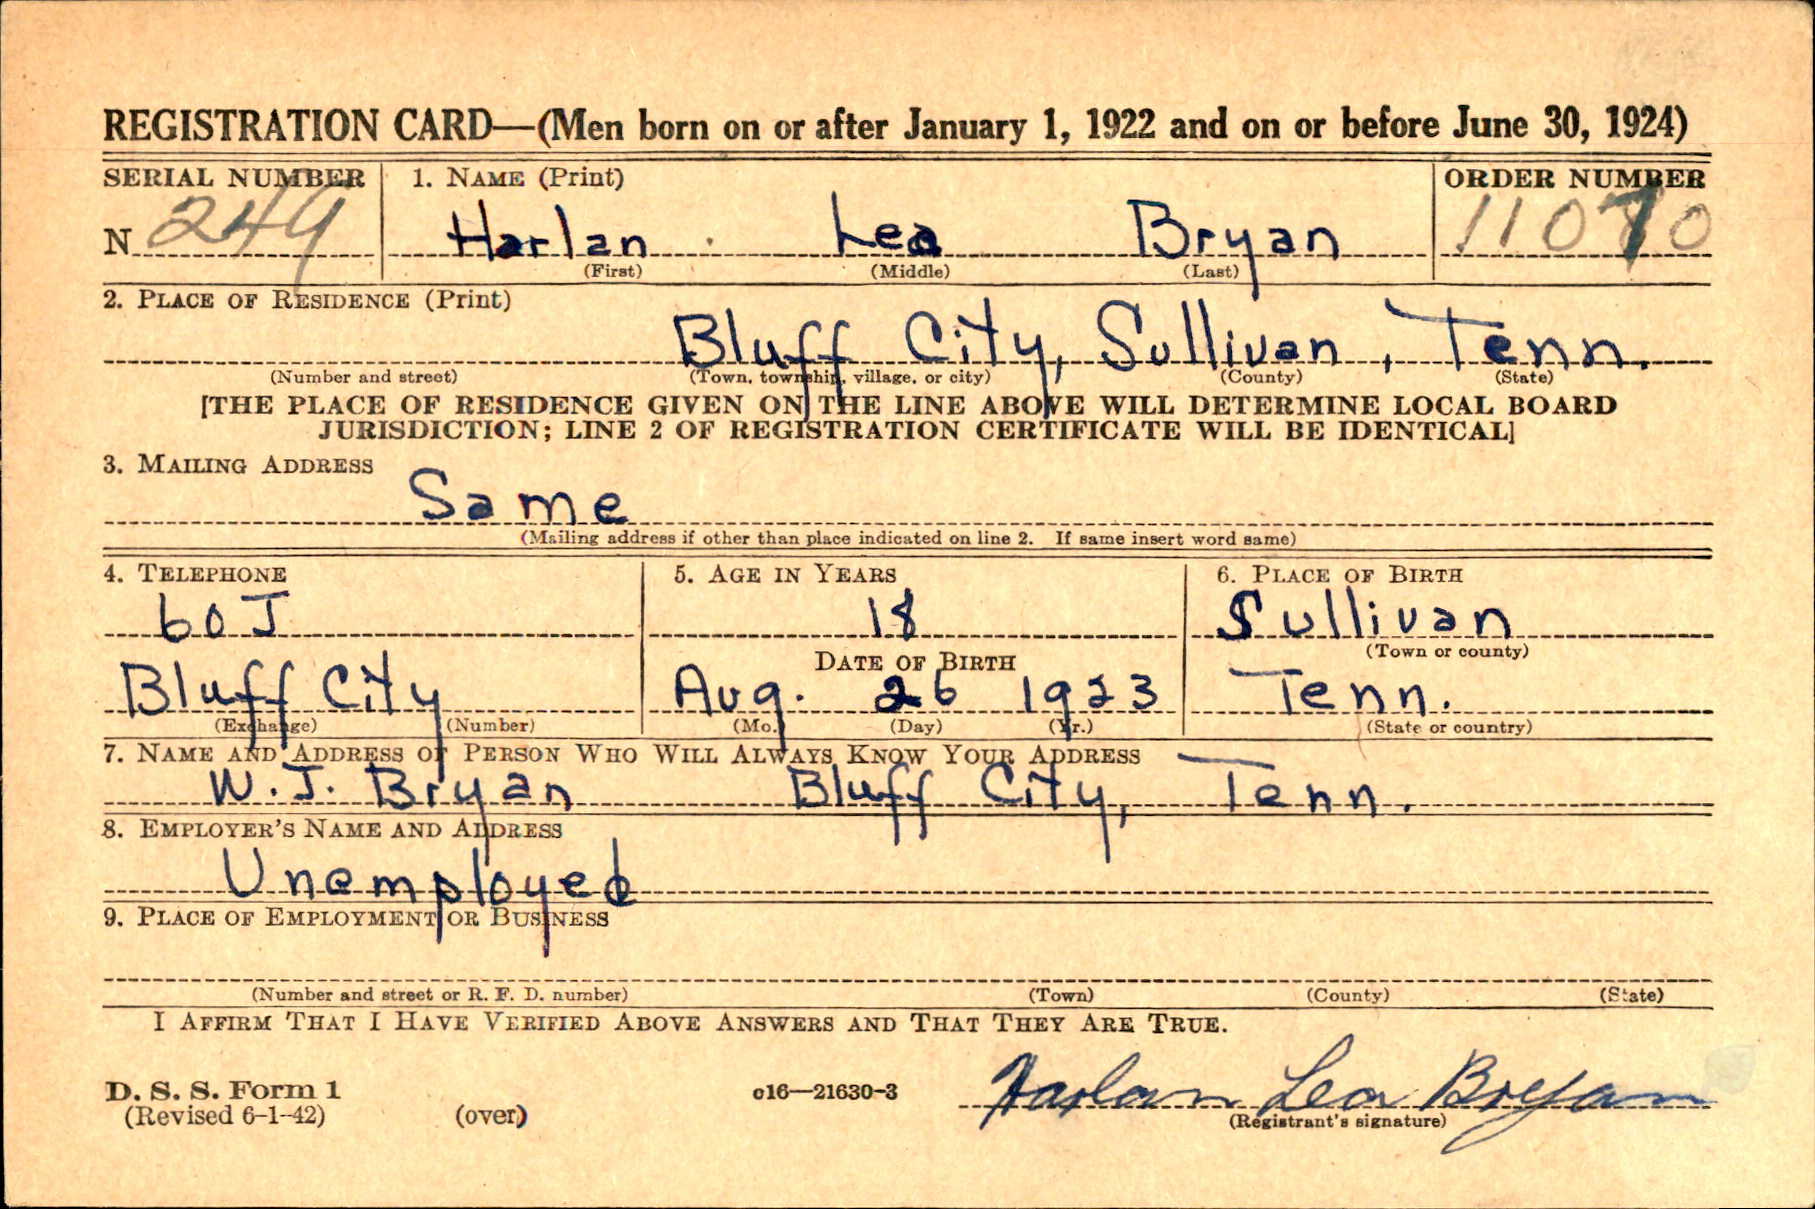 REGISTRATION CARD—(Men born on or after January 1, 1922 and on or before June 30, 1924)
SERIAL NUMBER 1. NAME (Print) ORDER NUMBER
N 249 Harlan Lea Bryan
(First) (Middle) (Last)
2. PLACE OF RESIDENCE (Print)
Bluff City, Sullivan, Tenn.
(Number and street) (Town, township, village, or city) (County) (State)
[THE PLACE OF RESIDENCE GIVEN ON THE LINE ABOVE WILL DETERMINE LOCAL BOARD
JURISDICTION; LINE 2 OF REGISTRATION CERTIFICATE WILL BE IDENTICAL]
3. MAILING ADDRESS
Same
(Mailing address if other than place indicated on line 2. If same insert word same)
4. TELEPHONE 5. AGE IN YEARS 6. PLACE OF BIRTH
60J 18 Sullivan
DATE OF BIRTH (Town or county)
Bluff City Aug. 26 1923 Tenn.
(Exchange) (Number) (Mo.) (Day) (Yr.) (State or country)
7. NAME AND ADDRESS OF PERSON WHO WILL ALWAYS KNOW YOUR ADDRESS
W. J. Bryan Bluff City, Tenn.
8. EMPLOYER'S NAME AND ADDRESS
Unemployed
9. PLACE OF EMPLOYMENT OR BUSINESS
(Number and street or R. F. D. number) (Town) (County) (State)
I AFFIRM THAT I HAVE VERIFIED ABOVE ANSWERS AND THAT THEY ARE TRUE.
D. S. S. Form 1 c16—21630-3 Harlan Lea Bryan
(Revised 6-1-42) (over) (Registrant's signature)